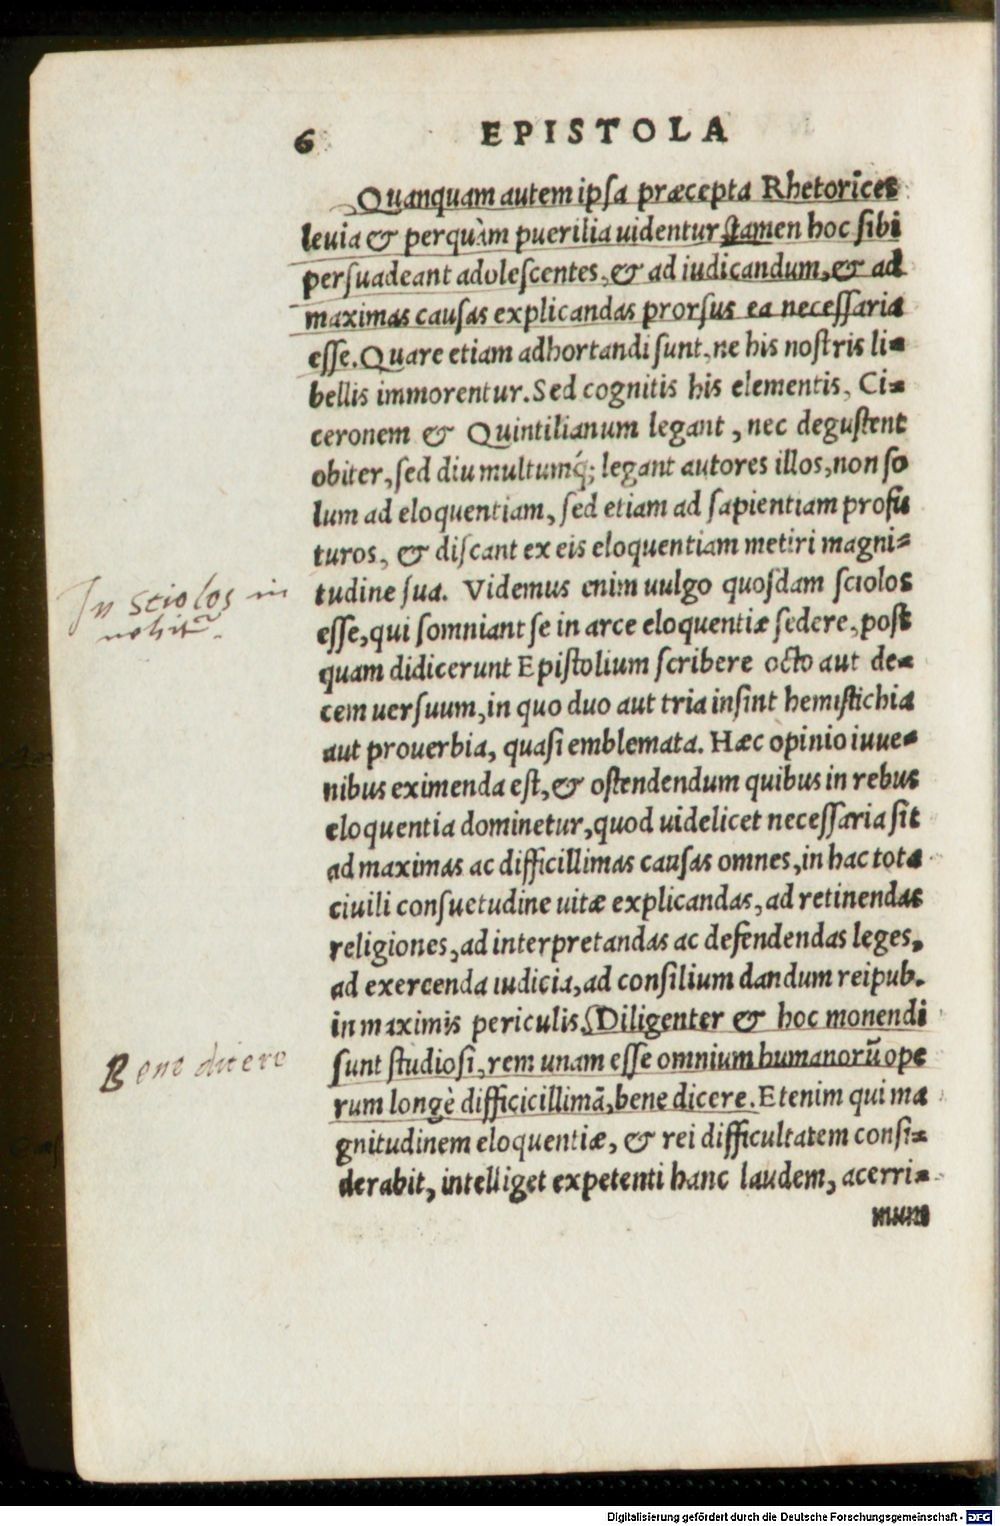 6 EPISTOLA
Quanquam autem ipſa præcepta Rhetorices
leuia & perquàm puerilia uidentur, tamen hoc ſibi
perſuadeant adoleſcentes, & ad iudicandum, & ad
maximas cauſas explicandas prorſus ea neceſſaria
eſſe. Quare etiam adhortandi ſunt, ne his noſtris li=
bellis immorentur. Sed cognitis his elementis, Ci=
ceronem & Quintilianum legant, nec deguſtent
obiter, ſed diu multumq́; legant autores illos, non ſo
lum ad eloquentiam, ſed etiam ad ſapientiam profu
turos, & diſcant ex eis eloquentiam metiri magni=
tudine ſua. Videmus enim uulgo quoſdam ſciolos
In sciolos in
eſſe, qui ſomniant ſe in arce eloquentiæ ſedere, poſt
quam didicerunt Epiſtolium ſcribere octo aut de=
cem uerſuum, in quo duo aut tria inſint hemiſtichia
aut prouerbia, quaſi emblemata. Hæc opinio iuue=
nibus eximenda eſt, & oſtendendum quibus in rebus
eloquentia dominetur, quod uidelicet neceſſaria ſit
ad maximas ac difficillimas cauſas omnes, in hac tota
ciuili conſuetudine uitæ explicandas, ad retinendas
religiones, ad interpretandas ac defendendas leges,
ad exercenda iudicia, ad conſilium dandum reipub.
in maximis periculis. Diligenter & hoc monendi
ſunt ſtudioſi, rem unam eſſe omnium humanorū ope
Bene dicere
rum longè difficicillimā, bene dicere. Etenim qui ma
gnitudinem eloquentiæ, & rei difficultatem conſi=
derabit, intelliget expetenti hanc laudem, acerri=
mum
Digitalisierung gefördert durch die Deutsche Forschungsgemeinschaft - DFG